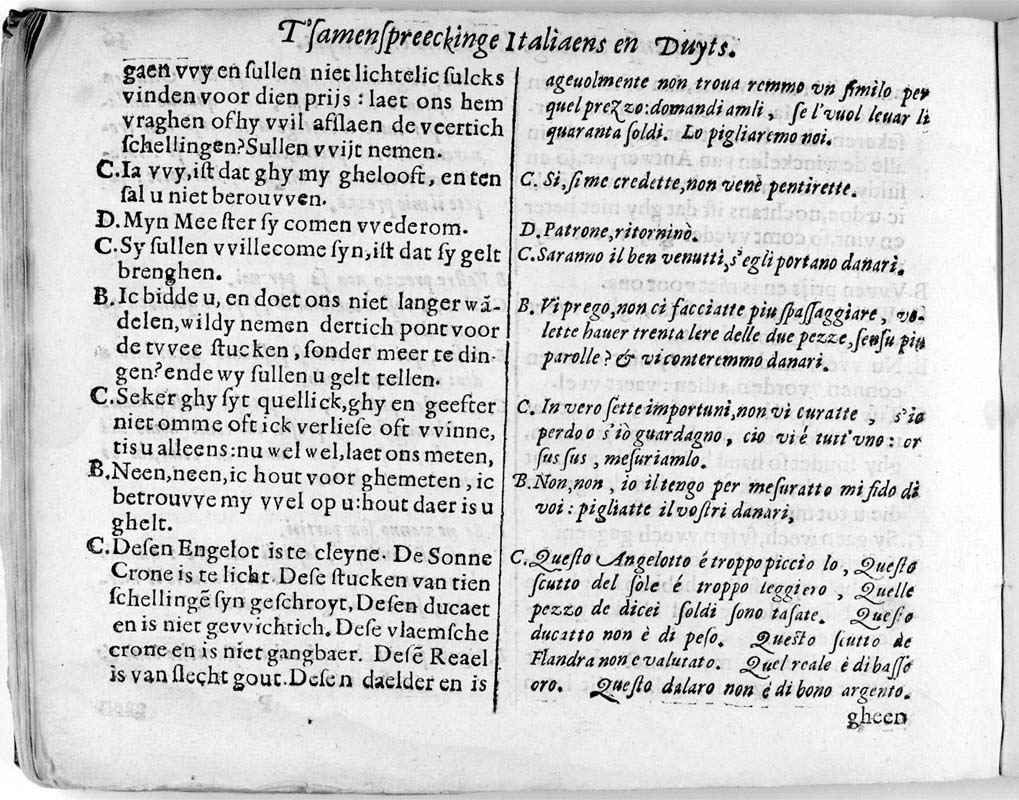 T'ſamenſpreeckinge Italiaens en Duyts.
gaen vvy en ſullen niet lichtelic ſulcks
vinden voor dien prijs : laet ons hem
vraghen of hy vvil afſlaen de veertich
ſchellingen? Sullen vvijt nemen.
C. Ia vvy, iſt dat ghy my ghelooft, en ten
ſal u niet berouvven.
D. Myn Meeſter ſy comen vvederom.
C. Sy ſullen vvillecome ſyn, iſt dat ſy gelt
brenghen.
B. Ic bidde u, en doet ons niet langer wā-
delen, wildy nemen dertich pont voor
de tvvee ſtucken, ſonder meer te din-
gen? ende wy ſullen u gelt tellen.
C. Seker ghy ſyt quellick, ghy en geefter
niet omme oft ick verlieſe oft vvinne,
tis u alleens : nu wel wel, laet ons meten,
B. Neen, neen, ic hout voor ghemeten, ic
betrouvve my vvel op u : hout daer is u
ghelt.
C. Deſen Engelot is te cleyne. De Sonne
Crone is te licht. Deſe ſtucken van tien
ſchellingē ſyn geſchroyt, Deſen ducaet
en is niet gevvichtich. Deſe vlaemſche
crone en is niet gangbaer. Deſē Reael
is van ſlecht gout. Deſen daelder en is
ageuolmente non troua remmo vn ſimilo per
quel prezzo : domandiamli, ſe l'vuol leuar li
quaranta ſoldi. Lo pigliaremo noi.
C. Si, ſi me credette, non venè pentirette.
D. Patrone, ritorninò.
C. Saranno il ben venutti, s'egli portano danari.
B. Vi prego, non ci facciatte piu ſpaſſaggiare, vo-
lette hauer trenta lere delle due pezze, ſenſu piu
parolle ? & vi conteremmo danari.
C. In vero ſette importuni, non vi curatte, s'io
perdo o s'iò guardagno, cio vi é tutt'vno : or
ſus ſus, meſuriamlo.
B. Non, non, io il tengo per meſuratto mi fido di
voi : pigliatte il voſtri danari,
C. Queſto Angelotto é troppo piccio lo, Queſto
ſcutto del ſole é troppo leggiero, Quelle
pezzo de dicei ſoldi ſono taſate. Queſto
ducatto non è di peſo. Queſto ſcutto de
Flandra non e valutato. Quel reale è di baſſo
oro. Queſto dalaro non é di bono argento.
gheen